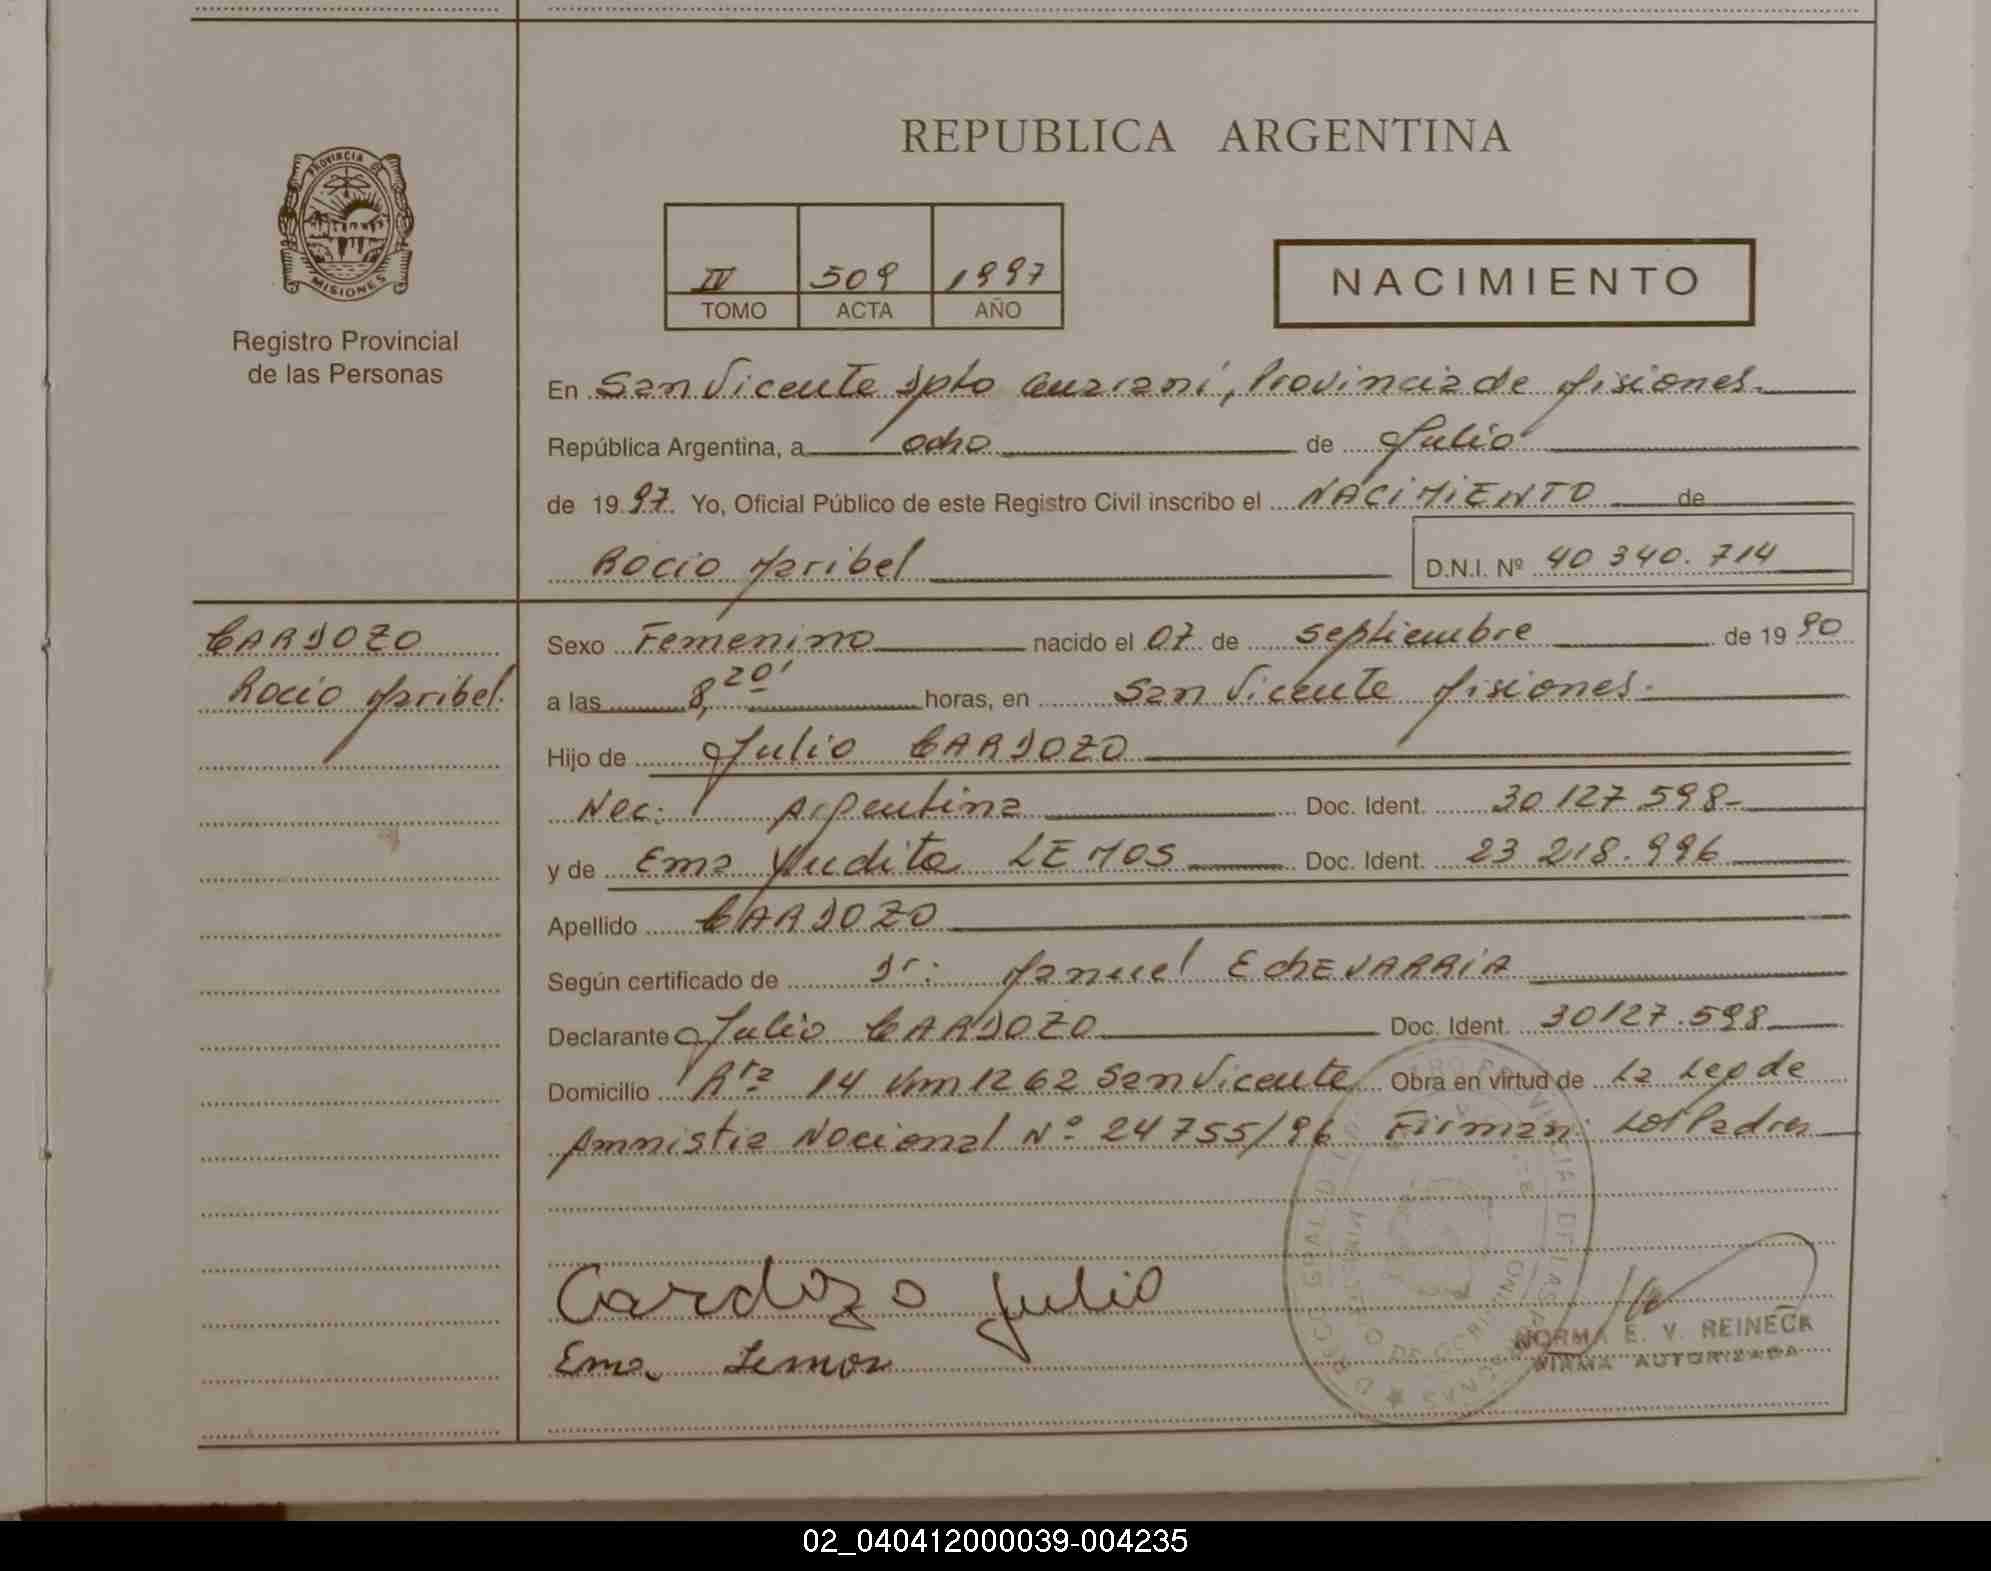 REPUBLICA ARGENTINA
PROVINCIA DE
MISIONES
Registro Provincial
de las Personas
IV 509 1997
TOMO ACTA AÑO
NACIMIENTO
En San Vicente Dpto Guaraní, Provincia de Misiones.
República Argentina, a ocho de Julio
de 1997. Yo, Oficial Público de este Registro Civil inscribo el NACIMIENTO de
Rocio Maribel D.N.I. Nº 40 340.714
CARDOZO
Rocio Maribel.
Sexo Femenino nacido el 07 de septiembre de 1990
a las 8,20' horas, en San Vicente Misiones.
Hijo de Julio CARDOZO
Nac: Argentina Doc. Ident. 30 127 598-
y de Ema Yudita LEMOS Doc. Ident. 23 218.996
Apellido CARDOZO
Según certificado de Dr: Manuel EChEVARRIA
Declarante Julio CARDOZO Doc. Ident. 30127.598
Domicilio Rta 14 Km 1262 San Vicente Obra en virtud de La Ley de
Amnistia Nacional Nº 24755/96 Firman: Los Padres
Cardozo Julio
Ema Lemos
NORMA E. V. REINECK
FIRMA AUTORIZADA
02_040412000039-004235